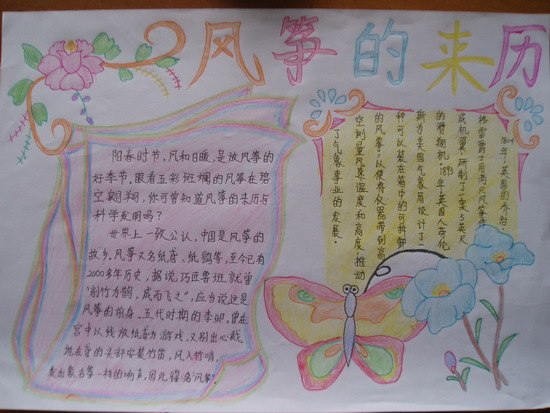 风筝的来历
阳春时节,风和日暖,是放风筝的
好季节,眼看五彩斑斓的风筝在碧
空翱翔,你可曾知道风筝的来历与
科学发明吗?
世界上一致公认,中国是风筝的
故乡,风筝又名纸鸢、纸鹞等,至今已有
2000多年历史,据说巧匠鲁班就曾
"削竹为鹊,成而飞之",应当说这是
风筝的前身,五代时期的李邺,曾在
宫中以线放纸鸢为游戏,又别出心裁
地在鸢的头部安装竹笛,风入竹鸣,
发出象古筝一样的响声,因此得名"风筝"
1804年,英国的乔治·
格雷爵士用两只风筝
成机翼,研制了一架5英尺
的滑翔机。1893年英国人劳伦
斯为美国气象局设计了一
种可以装在箱中的可拆卸
的风筝,以便将仪器带到高
空测量风量温度和高度,推动
了气象事业的发展。